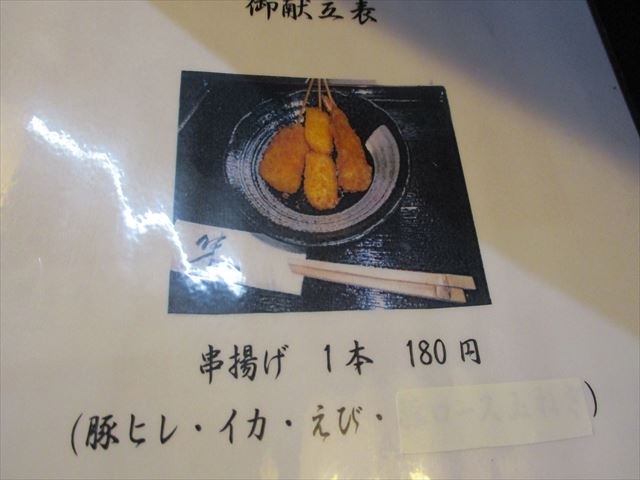 御献立表
串揚げ 1本 180円
(豚ヒレ・イカ・えび・ )